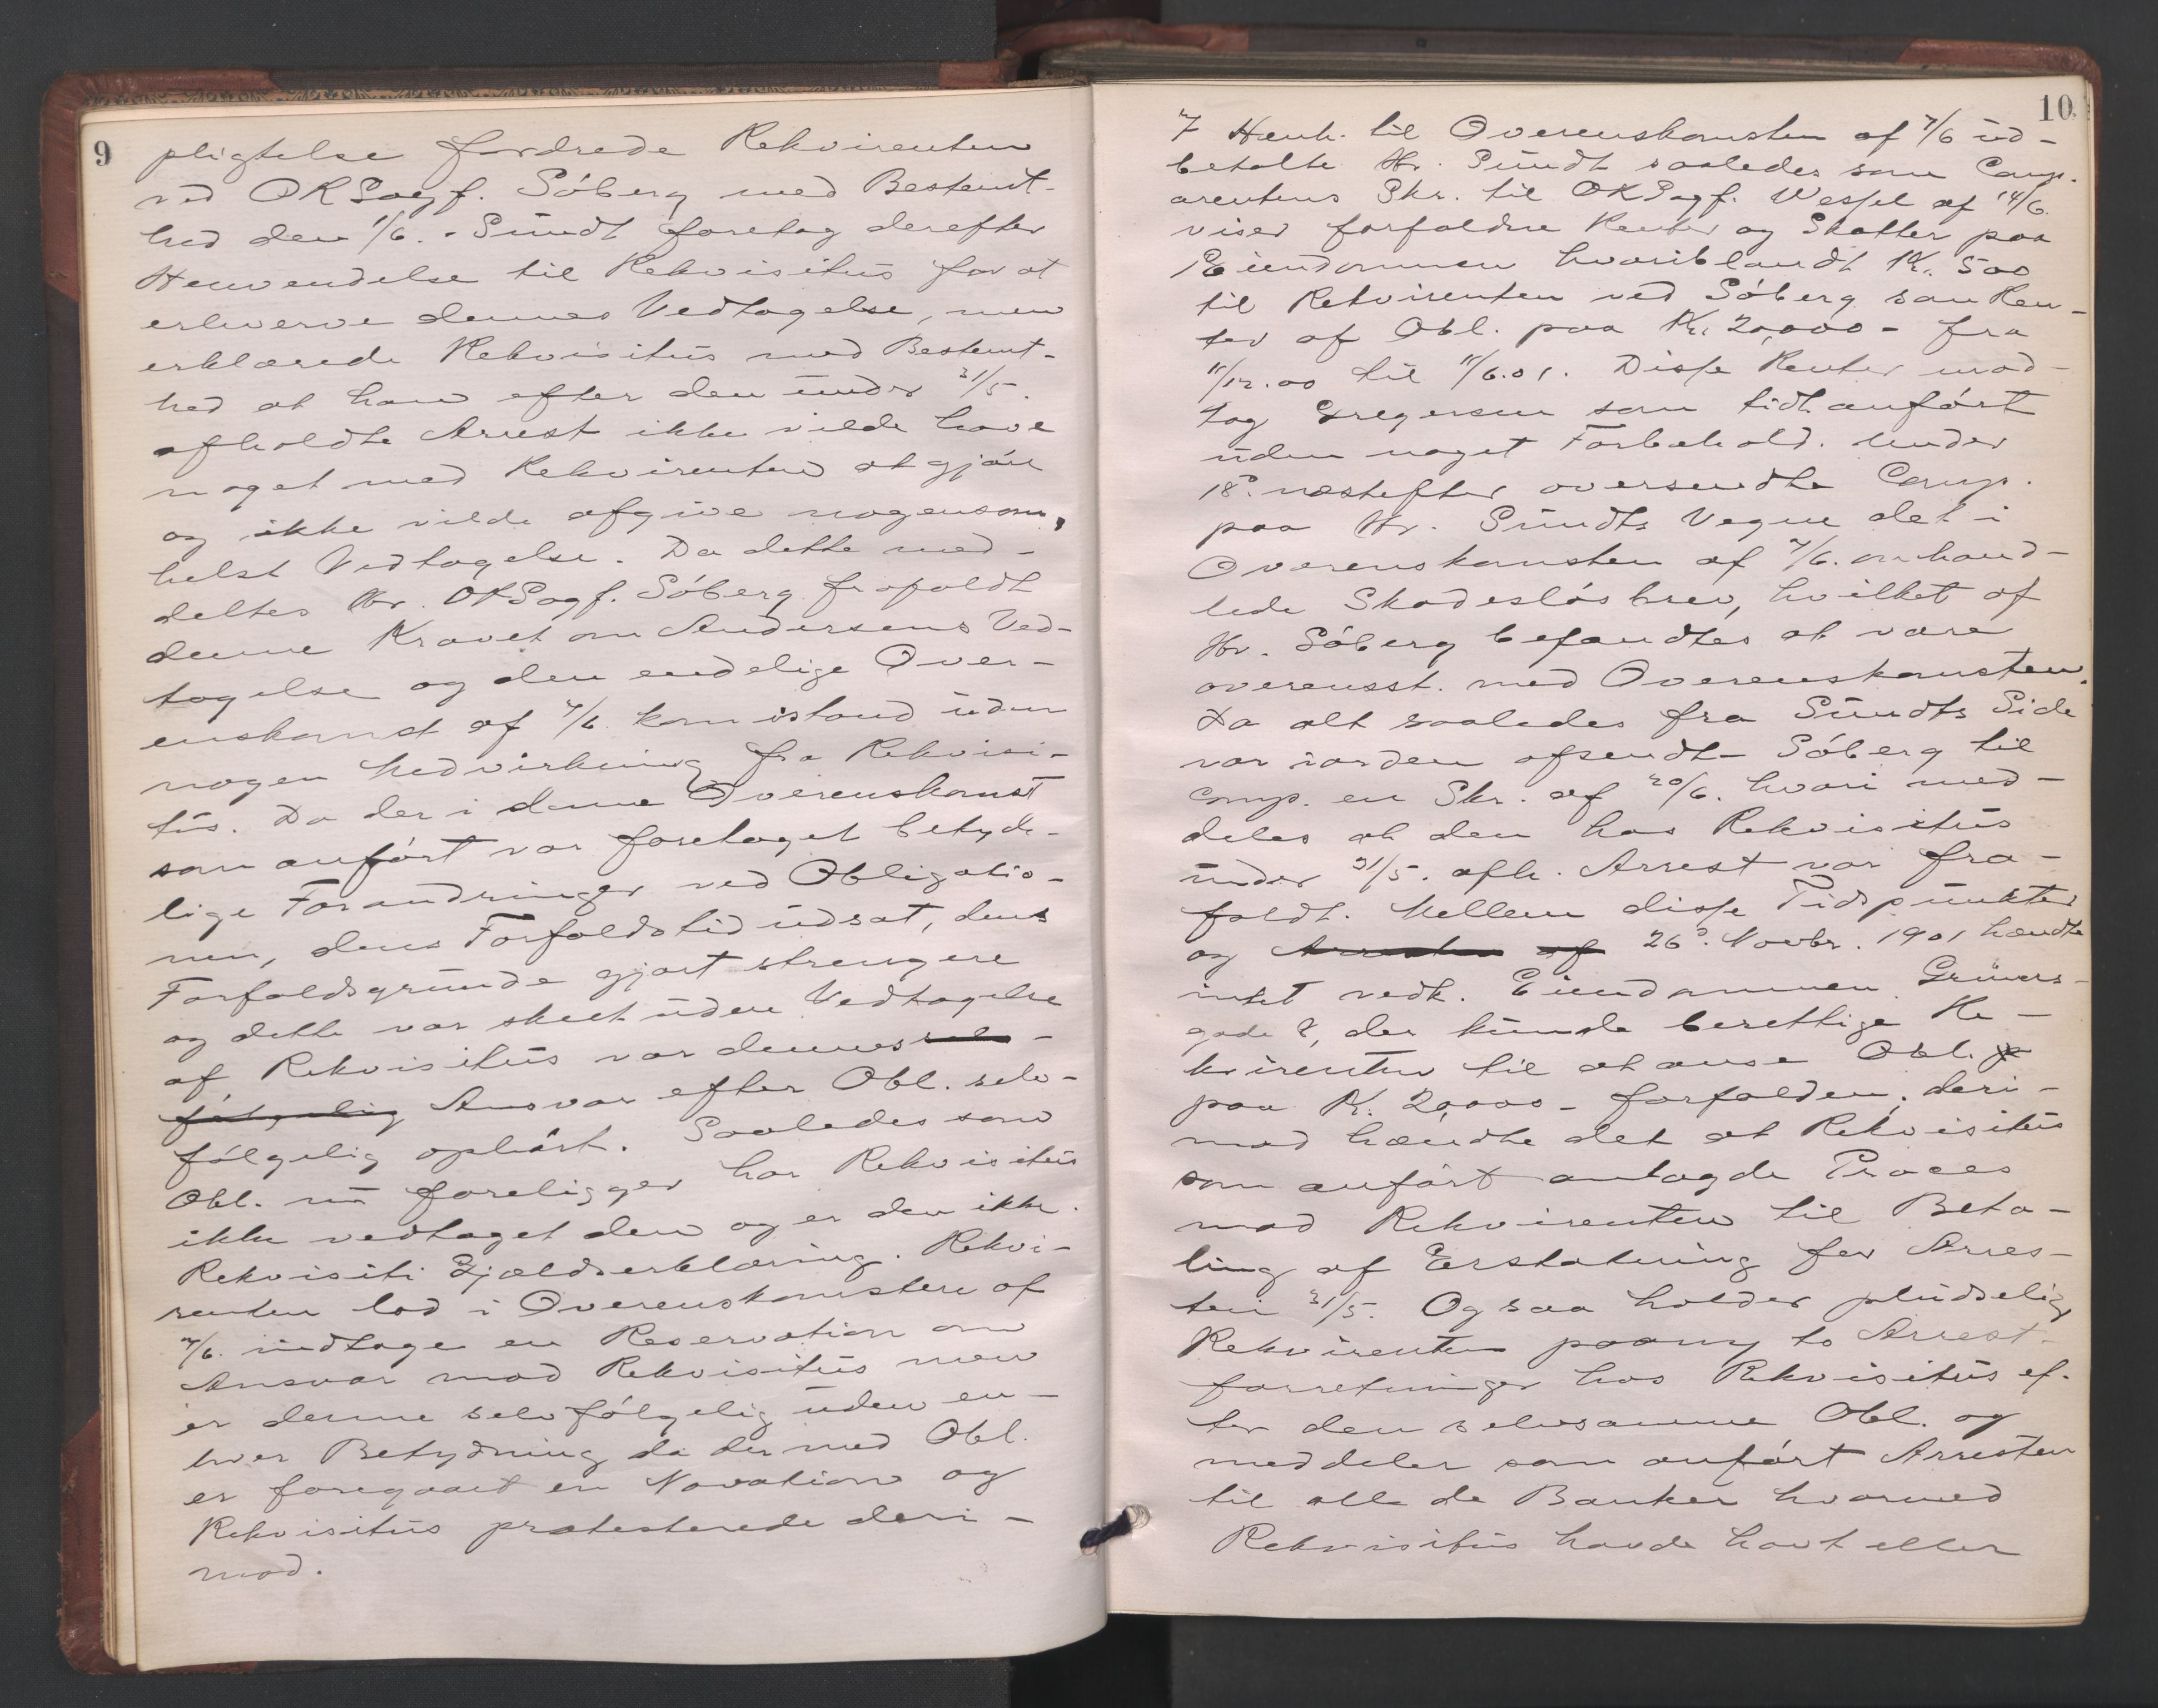 9
pligtelse fordrede Rekvirenten
ved OKSagf. Söberg med Bestemt-
hed den 1/6. - Sündt foretog derefter
Henvendelse til Rekvisitüs for at
erhverve dennes Vedtagelse, men
erklærede Rekvisitüs med Bestemt-
hed at han efter den ünder 31/5.
afholdte Arrest ikke vilde have
noget med Rekvirenten at gjöre
og ikke vilde afgive nogensom-
helst Vedtagelse. Da dette med-
deltes Hr. OKSagf. Söberg frafaldt
denne Kravet om Andersens Ved-
tagelse og den endelige Over-
enskomst af 7/6. kom istand üden
nogen Medvirkning fra Rekvisi-
tüs. Da der i denne Overenskomst
som anfört var foretaget betyde-
lige Forandringer ved Obligatio-
nen, dens Forfaldstid üdsat, dens
Forfaldsgründe gjort strengere
og dette var skeet üden Vedtagelse
af Rekvisitüs var dennes sel-
fölgelig Ansvar efter Obl. selv-
fölgelig ophört. Saaledes som
Obl. nü foreligger har Rekvisitüs
ikke vedtaget den og er den ikke
Rekvisiti Gjældserklæring. Rekvi-
renten lod i Overenskomsten af
7/6. indtage en Reservation om
Ansvar mod Rekvisitüs men
er denne selvfölgelig üden en-
hver Betydning da der med Obl.
er foregaaet en Novation og
Rekvisitüs protesterede deri-
mod.
10
I Henh. til Overenskomsten af 7/6 üd-
betalte Hr. Sündt saaledes som Comp-
arentens Skr. til OKSagf. Wessel af 14/6.
viser forfaldne Renter og Skatter paa
Eiendommen hvoriblandt Kr. 500
til Rekvirenten ved Söberg som Ren-
ter af Obl. paa Kr. 20,000 - fra
11/12.00 til 11/6.01. Disse Renter mod-
tog Gregersen som tidt anfört
üden noget Forbehold. Under
18d. næstefter oversendte Comp.
paa Hr. Sündts Vegne det i
Overenskomsten af 7/6. omhand-
lede Skadeslösbrev, hvilket af
Hr. Söberg befandtes at være
overensst. med Overenskomsten.
Da alt saaledes fra Sündts Side
var iorden afsendte Söberg til
Comp. en Skr. af 20/6. hvori med-
deles at den hos Rekvisitüs
ünder 31/5. afh. Arrest var fra-
faldt. Mellem disse Tidspünkter
og Arresten af 26d. Novbr. 1901 hændte
intet vedk. Eiendommen Grüners-
gade 8, der künde berettige Re-
kvirenten til at anse Obl.
paa K. 20,000 - forfalden, deri-
mod hændte det at Rekvisitüs
som anfört anlagde Proces
mod Rekvirenten til Beta-
ling af Erstatning for Arres-
ten 31/5. Og saa holder plüdselig
Rekvirenten paany to Arrest-
forretninger hos Rekvisitüs ef-
ter den selvsamme Obl. og
meddeler som anfört Arresten
til alle de Banker hvormed
Rekvisitüs havde havt eller